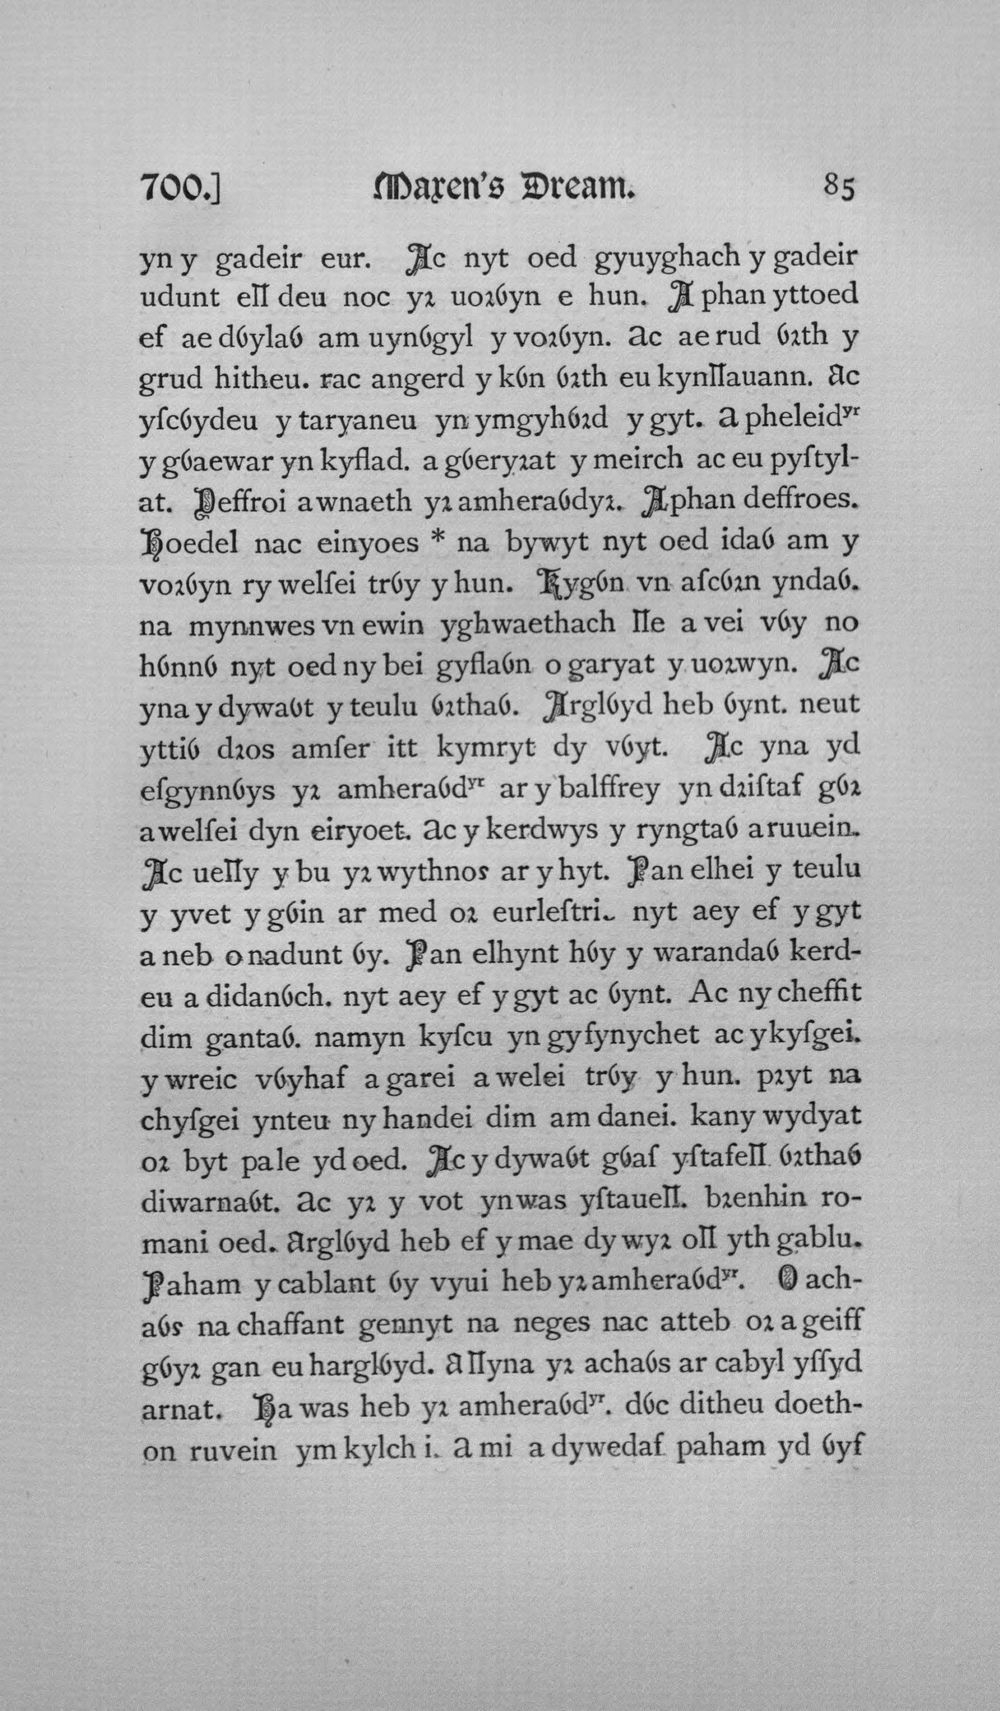 700.] Maxen's Dream. 85
yn y gadeir eur. Ac nyt oed gyuyghach y gadeir
udunt eỻ deu noc yꝛ uoꝛỽyn e hun. A phan yttoed
ef ae dỽylaỽ am uynỽgyl y voꝛỽyn. ac ae rud ỽꝛth y
grud hitheu. rac angerd y kỽn ỽꝛth eu kynỻauann. ac
yſcỽydeu y taryaneu yn ymgyhỽꝛd y gyt. a pheleidyr
y gỽaewar yn kyflad. a gỽeryꝛat y meirch ac eu pyſtyl-
at. Deffroi awnaeth yꝛ amheraỽdyꝛ. Aphan deffroes.
Hoedel nac einyoes * na bywyt nyt oed idaỽ am y
voꝛỽyn ry welſei trỽy y hun. Kygỽn vn aſcỽꝛn yndaỽ.
na mynnwes vn ewin yghwaethach ỻe a vei vỽy no
hỽnnỽ nyt oed ny bei gyflaỽn o garyat y uoꝛwyn. Ac
yna y dywaỽt y teulu ỽꝛthaỽ. Arglỽyd heb ỽynt. neut
yttiỽ dꝛos amſer itt kymryt dy vỽyt. Ac yna yd
eſgynnỽys yꝛ amheraỽdyr ar y balffrey yn dꝛiſtaf gỽꝛ
awelſei dyn eiryoet. ac y kerdwys y ryngtaỽ aruuein.
Ac ueỻy y bu yꝛ wythnos ar y hyt. Pan elhei y teulu
y yvet y gỽin ar med oꝛ eurleſtri. nyt aey ef y gyt
a neb onadunt ỽy. Pan elhynt hỽy y warandaỽ kerd-
eu a didanỽch. nyt aey ef y gyt ac ỽynt. Ac ny cheffit
dim gantaỽ. namyn kyſcu yn gyfynychet ac ykyſgei.
y wreic vỽyhaf a garei a welei trỽy y hun. pꝛyt na
chyſgei ynteu ny handei dim am danei. kany wydyat
oꝛ byt pale yd oed. Ac y dywaỽt gỽas yſtafeỻ ỽꝛthaỽ
diwarnaỽt. ac yꝛ y vot ynwas yſtaueỻ. bꝛenhin ro-
mani oed. arglỽyd heb ef y mae dy wyꝛ oỻ yth gablu.
Paham y cablant ỽy vyui heb yꝛ amheraỽdyr. O ach-
aỽs na chaffant gennyt na neges nac atteb oꝛ a geiff
gỽyꝛ gan eu harglỽyd. a ỻyna yꝛ achaỽs ar cabyl yſſyd
arnat. Ha was heb yꝛ amheraỽdyr. dỽc ditheu doeth-
on ruvein ym kylch i. a mi a dywedaf paham yd ỽyf